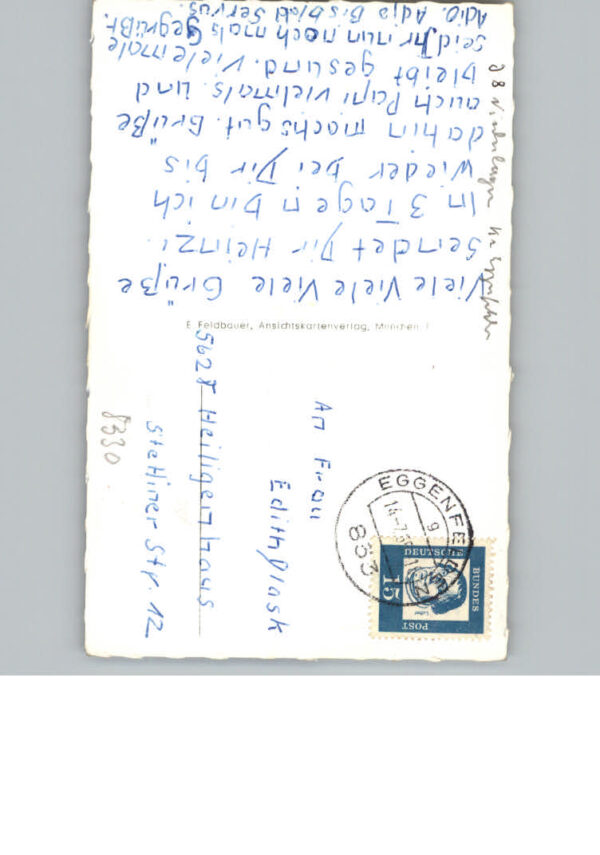 Viele Viele Viele Grüße
Sendet Dir Heinz.
In 3 Tagen bin ich
wieder bei Dir bis
dahin machs gut. Grüße
auch Papi vielmals und
bleibt gesund. Viele male
seid Ihr nun noch mals Gegrüßt.
Adio. Adio Bis bald Servus.
E. Feldbauer, Ansichtskartenverlag, München
An Frau
Edith Plask
5628 Heiligenhaus
Stettiner Str. 12
8330
EGGENFE
833
DEUTSCHE
BUNDES
POST
15